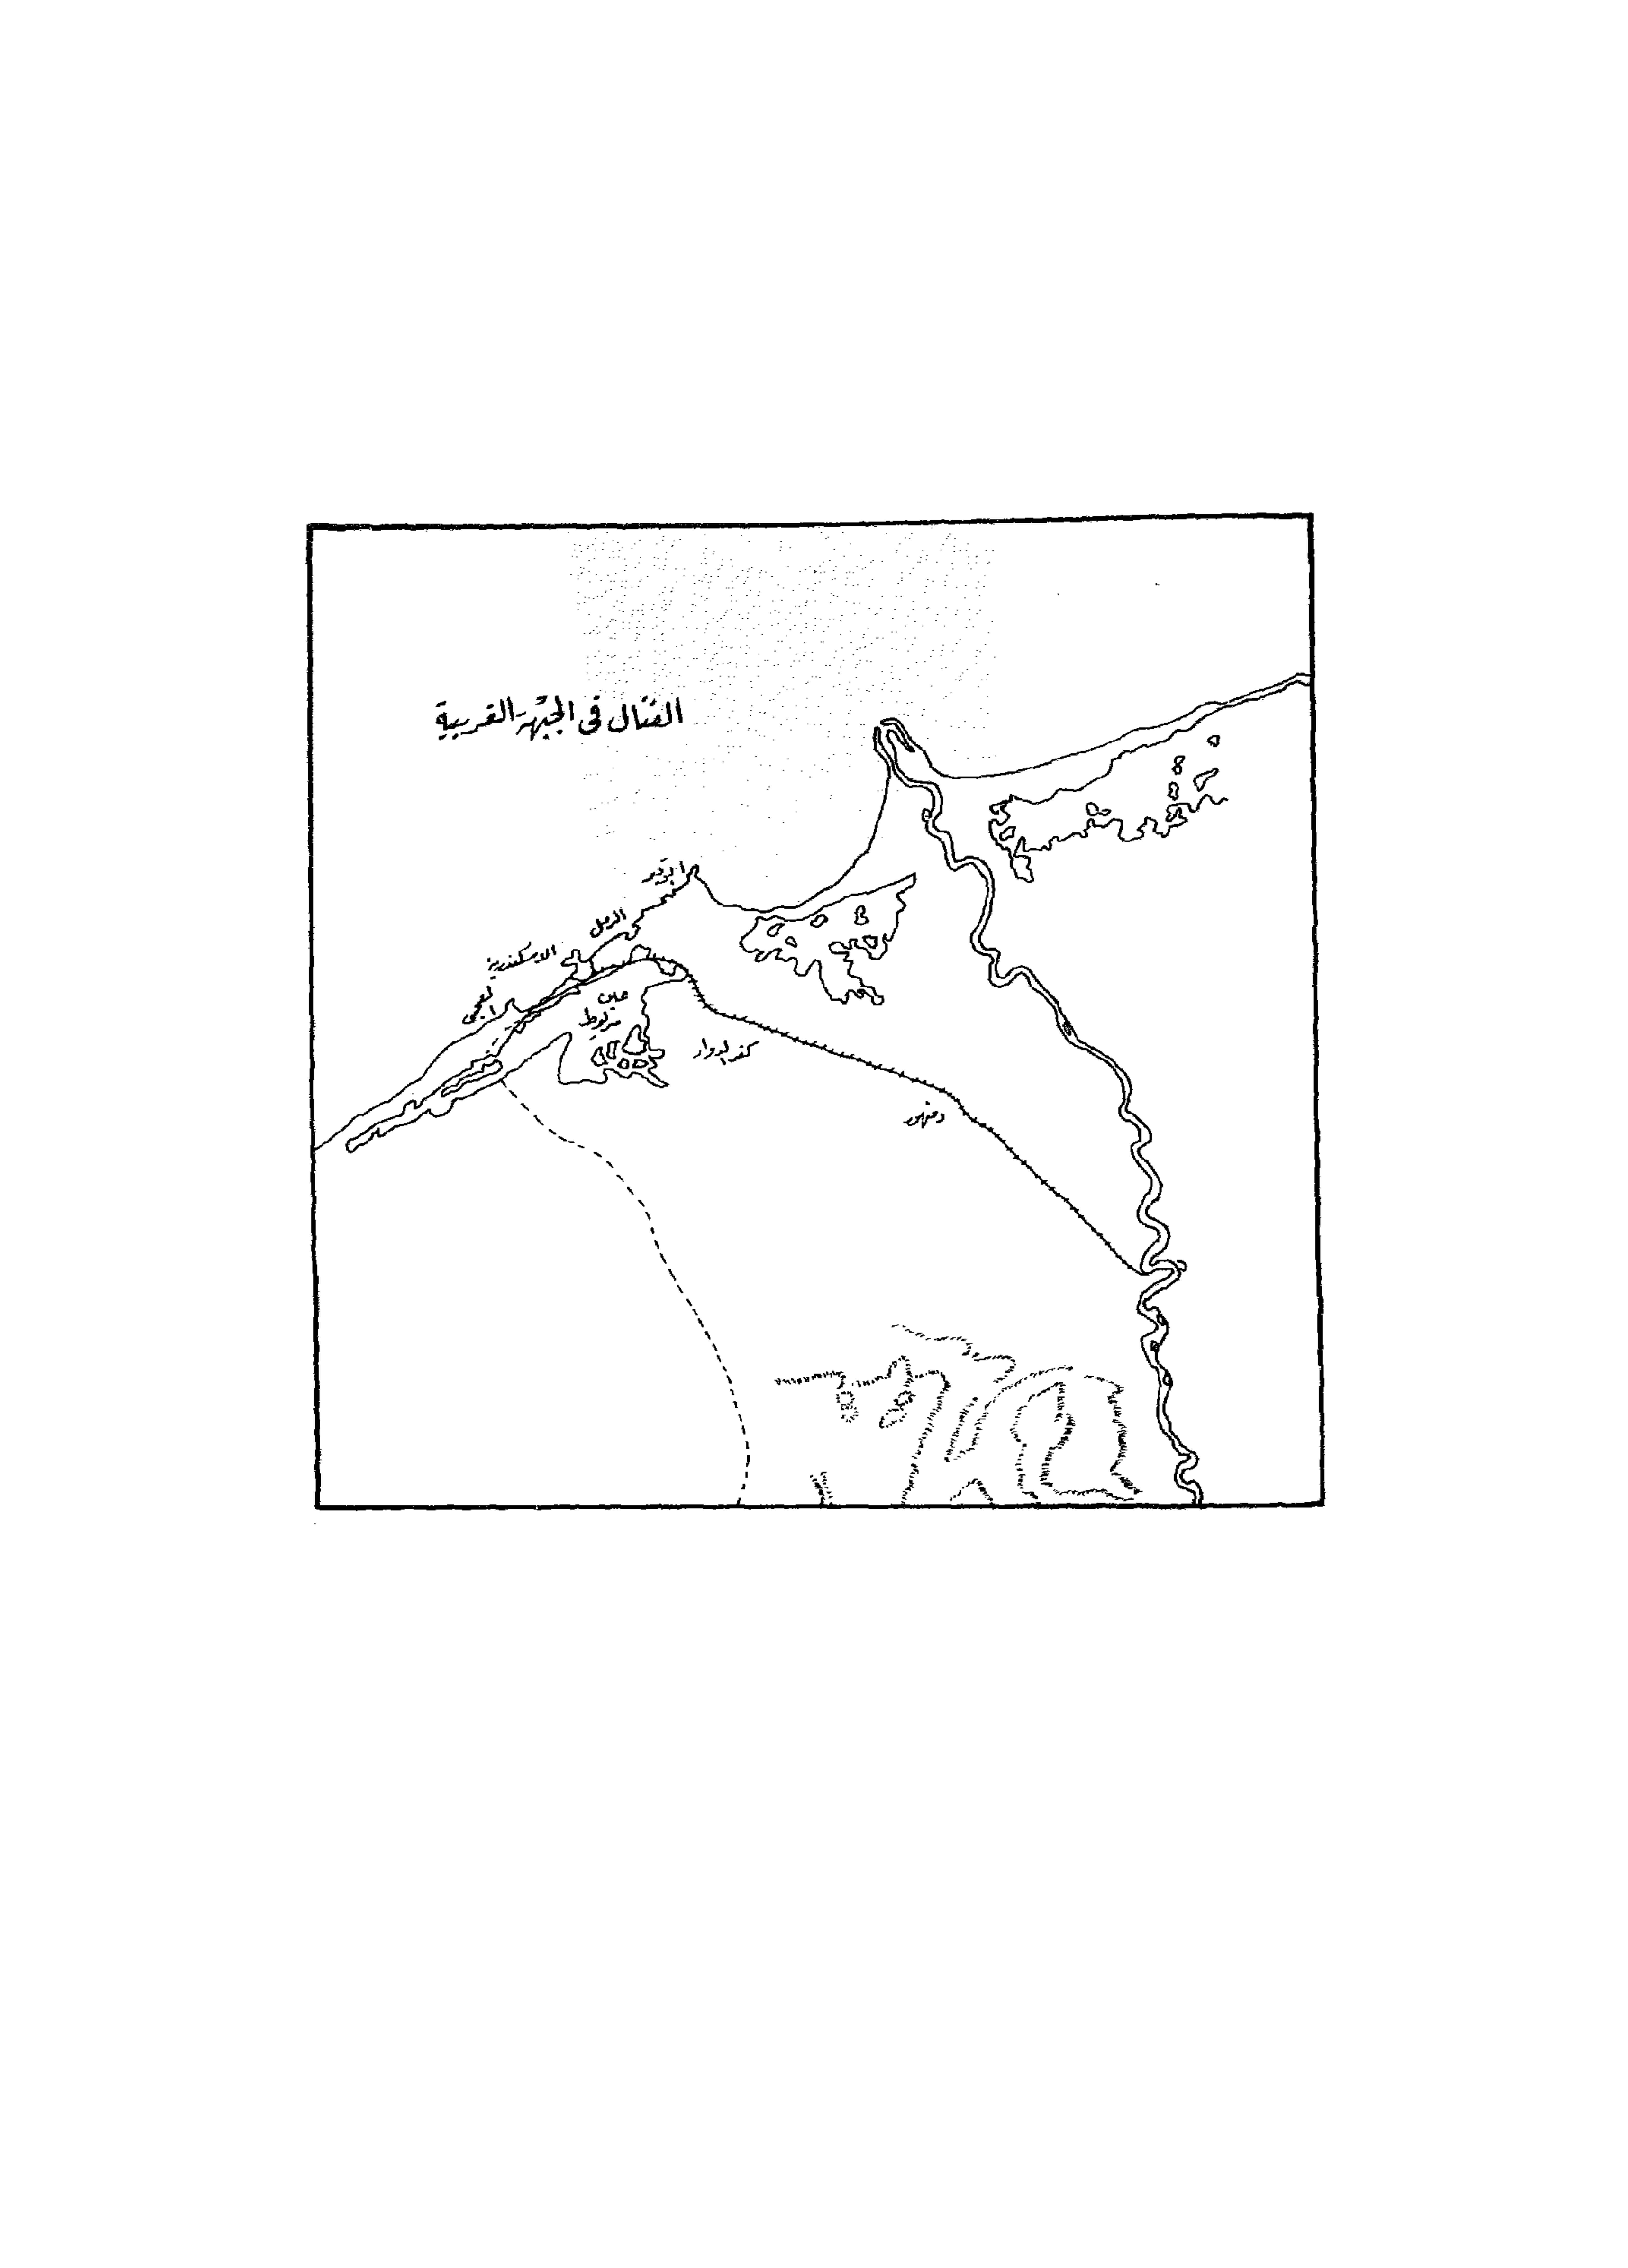 القتال فى الجبهة الغربية
ابوقير
الرمل
الاسكندرية
العجمى
مريوط
كفر الدوار
دمنهور